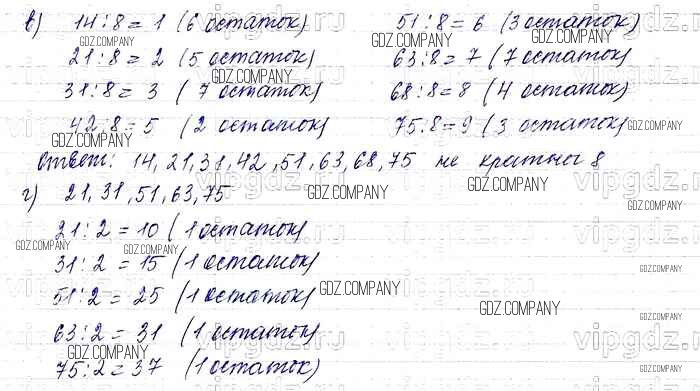 в) 14:8= 1 (6 остаток) 51:8= 6 (3 остаток)
GDZ.COMPANY GDZ.COMPANY
21:8= 2 (5 остаток) 63:8= 7 (7 остаток)
GDZ.COMPANY GDZ.COMPANY
31:8= 3 (7 остаток) 68:8=8 (4 остаток)
42:8=5 (2 остаток) 75:8=9 (3 остаток)
GDZ.COMPANY GDZ.COMPANY
Ответ: 14, 21, 31, 42, 51, 63, 68, 75 не кратны 8
г) 21, 31, 51, 63, 75
GDZ.COMPANY GDZ.COMPANY GDZ.COMPANY
21:2 = 10 (1 остаток)
GDZ.COMPANY GDZ.COMPANY
31:2 = 15 (1 остаток)
GDZ.COMPANY
51:2 = 25 (1 остаток)
GDZ.COMPANY GDZ.COMPANY
63:2 = 31 (1 остаток)
GDZ.COMPANY GDZ.COMPANY
75:2=37 (1 остаток)
vipgdz.ru